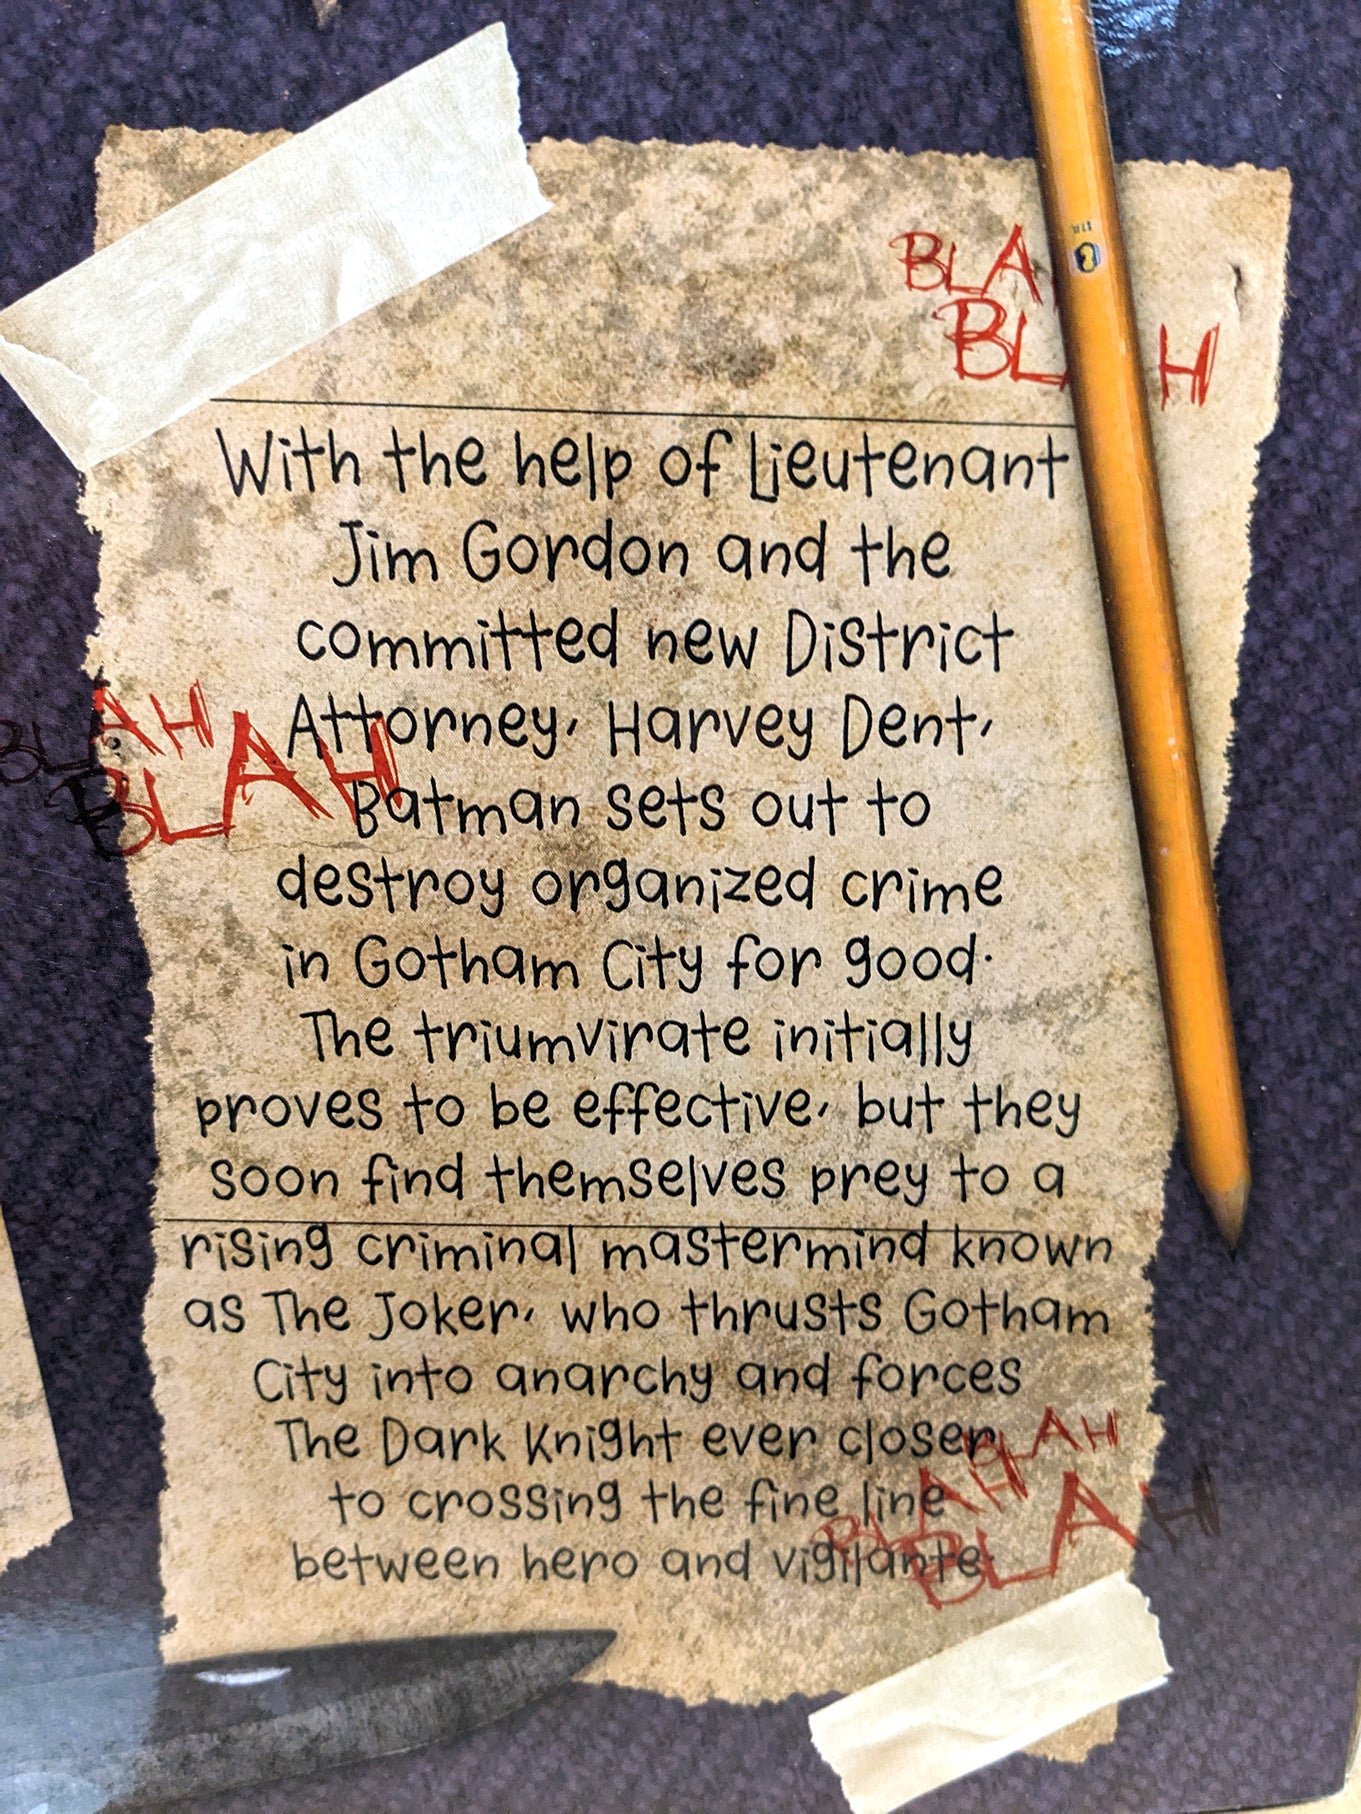 BLA
BL H
With the help of Lieutenant
Jim Gordon and the
committed new District
Attorney, Harvey Dent,
BLAH
BLAH
Batman sets out to
destroy organized crime
in Gotham City for good.
The triumvirate initially
proves to be effective, but they
soon find themselves prey to a
rising criminal mastermind known
as The Joker, who thrusts Gotham
City into anarchy and forces
The Dark Knight ever closer
to crossing the fine line
between hero and vigilante.
BLAH
BLAH
BLAH